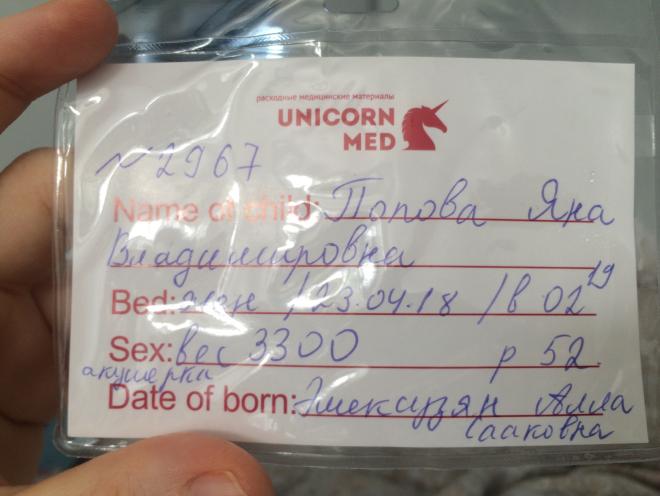 расходные медицинские материалы
UNICORN
MED
№2967
Name of child: Попова Яна
Владимировна
Bed: жен / 23.04.18 / в 02 19
Sex: вес 3300 р 52
акушерка
Date of born: Алла
Сааковна